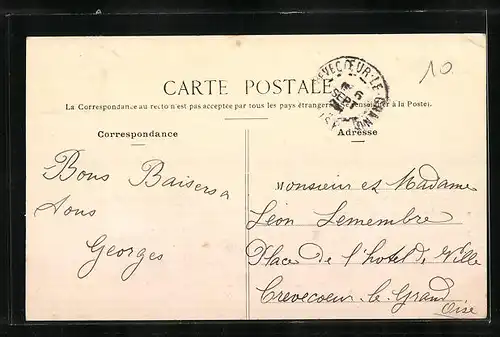 CARTE POSTALE
10.
CREVECŒUR-LE-GRAND
La Correspondance au recto n'est pas acceptée par tous les pays étrangers à la Poste).
Correspondance
Adresse
Bons Baisers a
tous
Georges
Monsieur et Madame
Léon Lemembre
Place de l'hotel de Ville
Crevecoeur-le-Grand
Oise